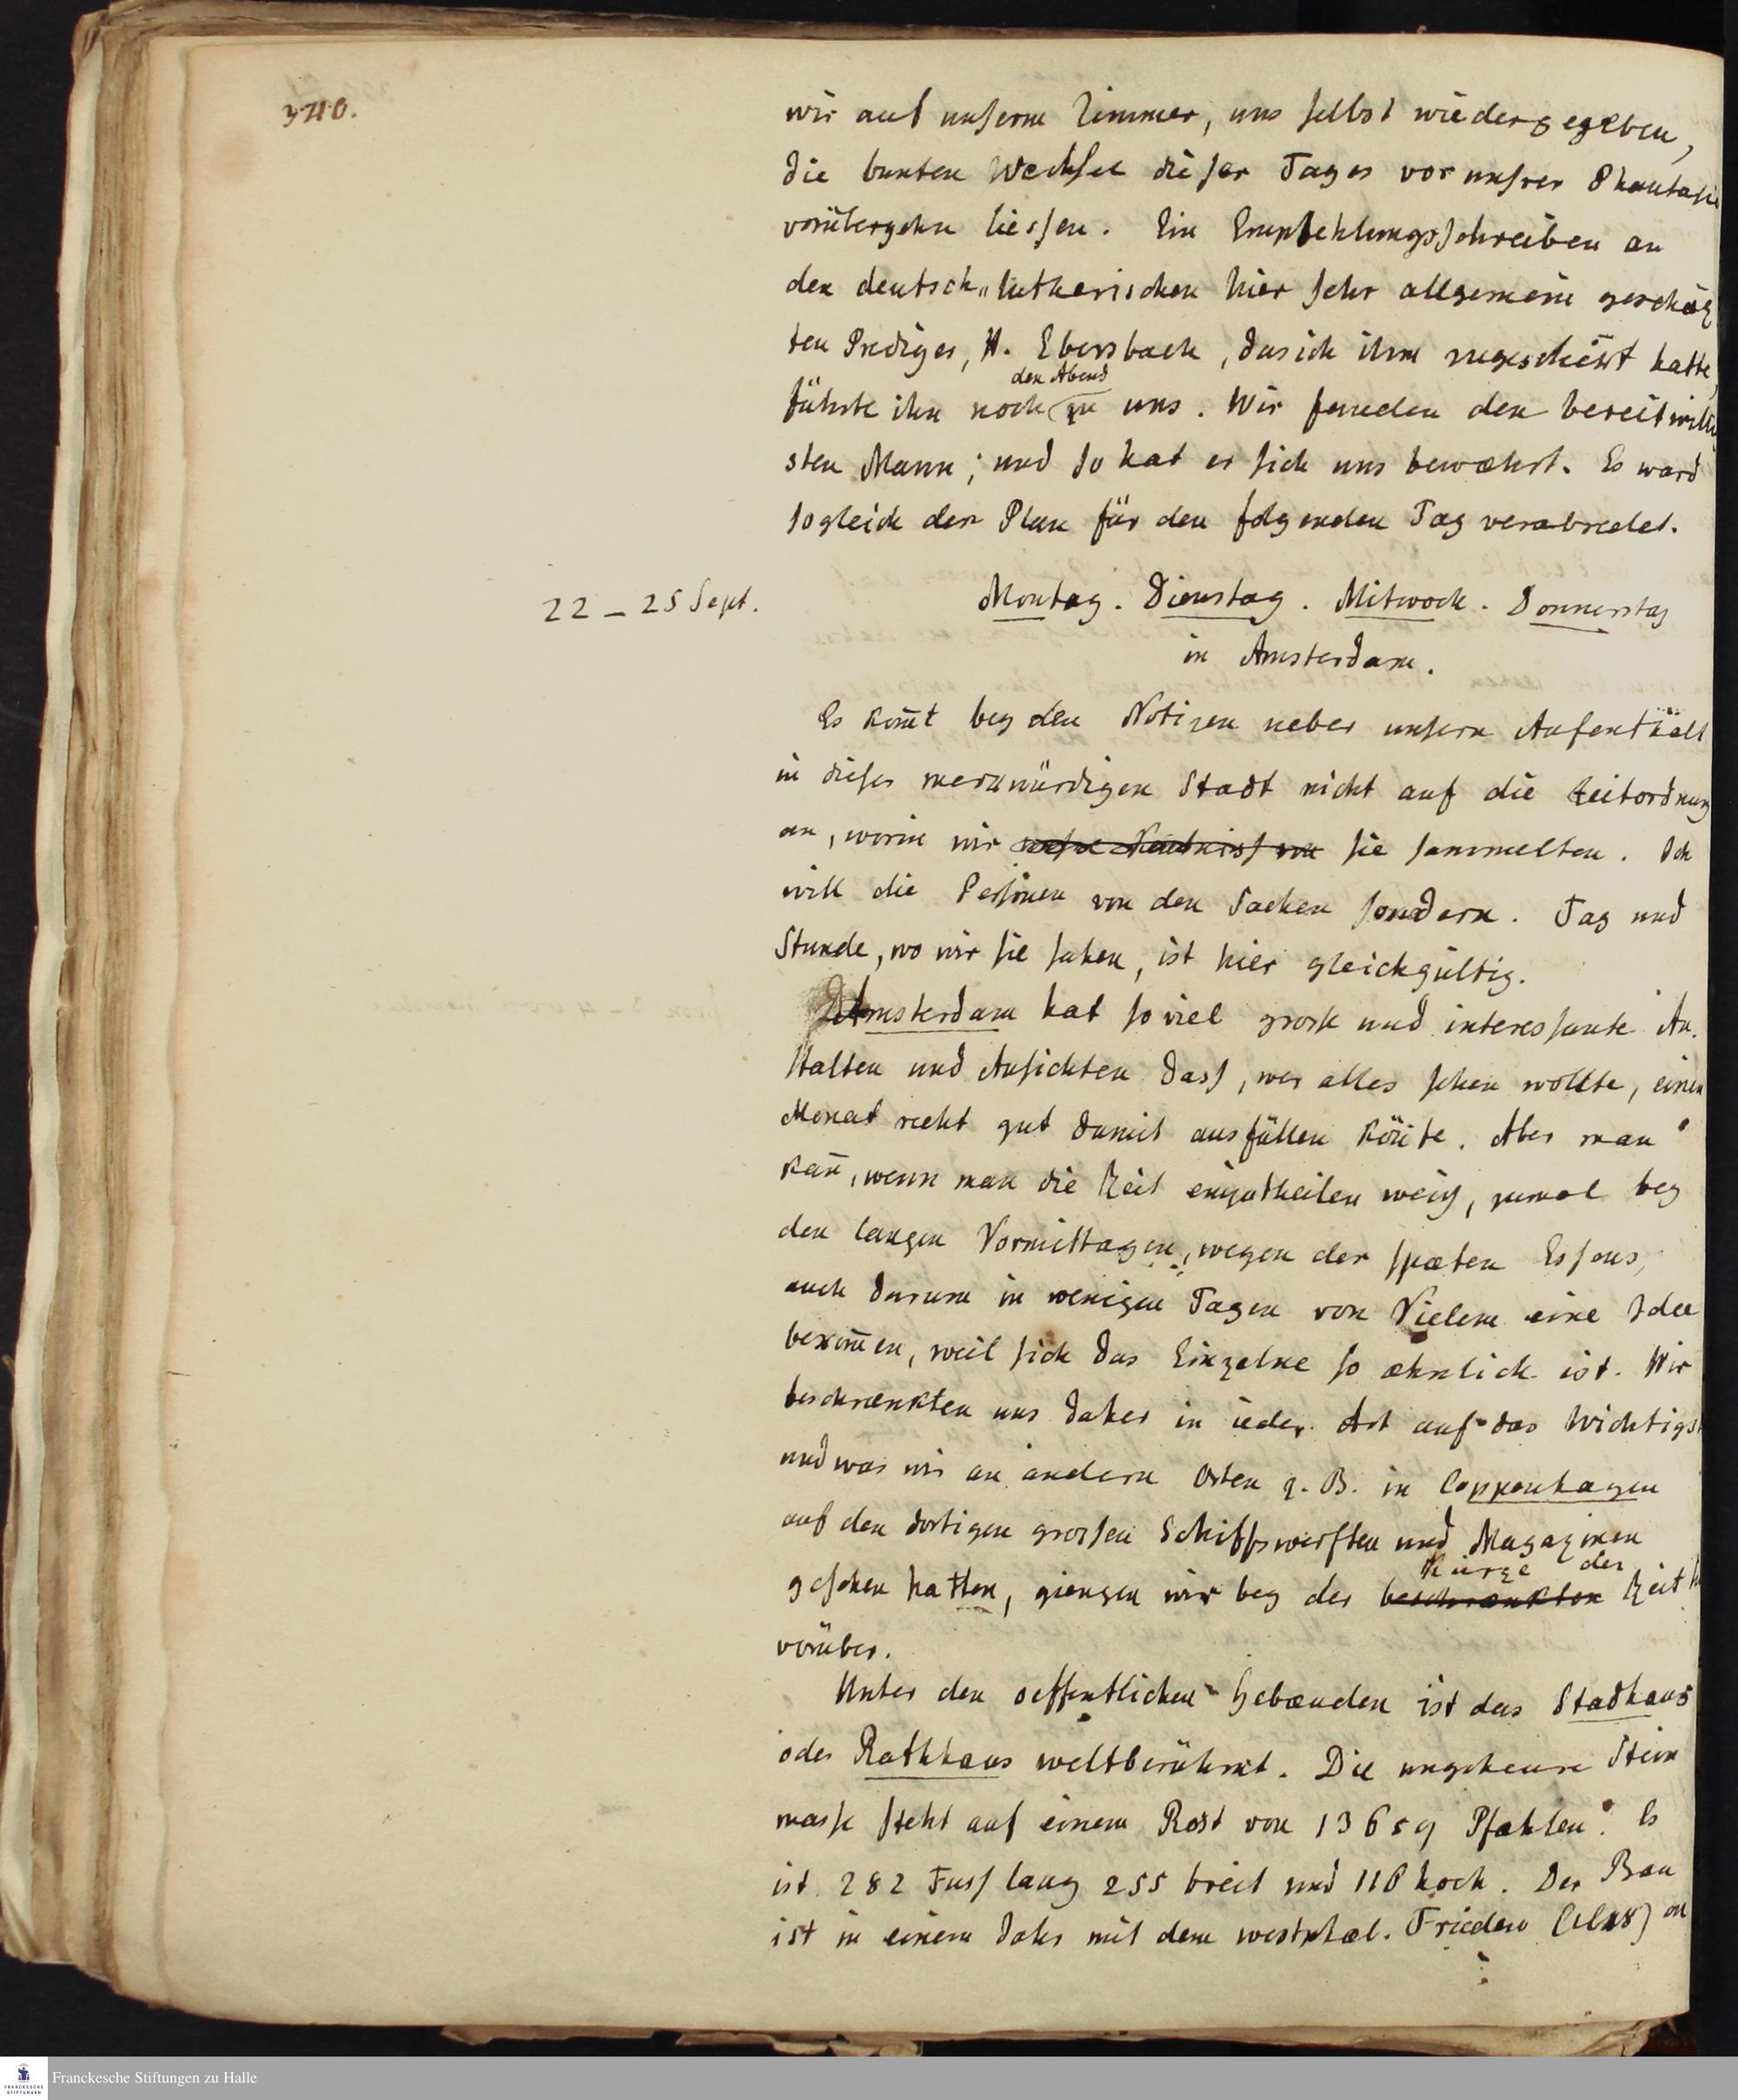 3710.
wir auf unserm Zimmer, uns selbst wiedergegeben,
die bunten Wechsel dieser Tages vor unsrer Phantasie
vorübergehn liessen. Ein Empfehlungsschreiben an
den deutsch„lutherischen hier sehr allgemein geschäz
ten Prediger, H. Ebersbach, das ich ihm zugeschikt hatte,
den Abend
führte ihn noch zu uns. Wir fanden den bereitwillig
sten Mann; und so hat er sich uns bewæhrt. Es ward
sogleich der Plan für den folgenden Tag verabredet.
22 – 25 Sept.
Montag. Dienstag. Mitwoch. Donnerstag
in Amsterdam.
Es kom̄t bey den Notizen ueber unsern Aufenthalt
in dieser merkwürdigen Stadt nicht auf die Zeitordnung
an, worin wir sie sammelten. Ich
will die Personen von den Sachen sondern. Tag und
Stunde, wo wir sie sahen, ist hier gleichgültig.
Amsterdam hat so viel grosse und interessante An-
stalten und Ansichten dass, wer alles sehen wollte, einen
Monat recht gut damit ausfüllen kön̄te. Aber man
kan̄, wenn man die Zeit einzutheilen weiß, zumal bey
den langen Vormittagen, wegen der spæten Essens,
auch darum in wenigen Tagen von Vielem eine Idee
bekom̄en, weil sich das Einzelne so æhnlich ist. Wir
beschrænkten uns daher in ieder Art auf das Wichtigst
und was wir an andern Orten z. B. in Coppenhagen
auf den dortigen grossen Schiffswerften und Magazinen
Kürze der
gesehen hatten, giengen wir bey der beschrænkten Zeit
vorüber.
Unter den oeffentlichen Gebæuden ist das Stadhaus
oder Rathhaus weltberühmt. Die ungeheure Stein
masse steht auf einem Rost von 13659 Pfæhlen. Es
ist 282 Fuss lang 255 breit und 116 hoch. Der Bau
ist in einem Jahr mit dem westphæl. Frieden (1648) an
Franckesche Stiftungen zu Halle
FRANCKESCHE
STIFTUNGEN